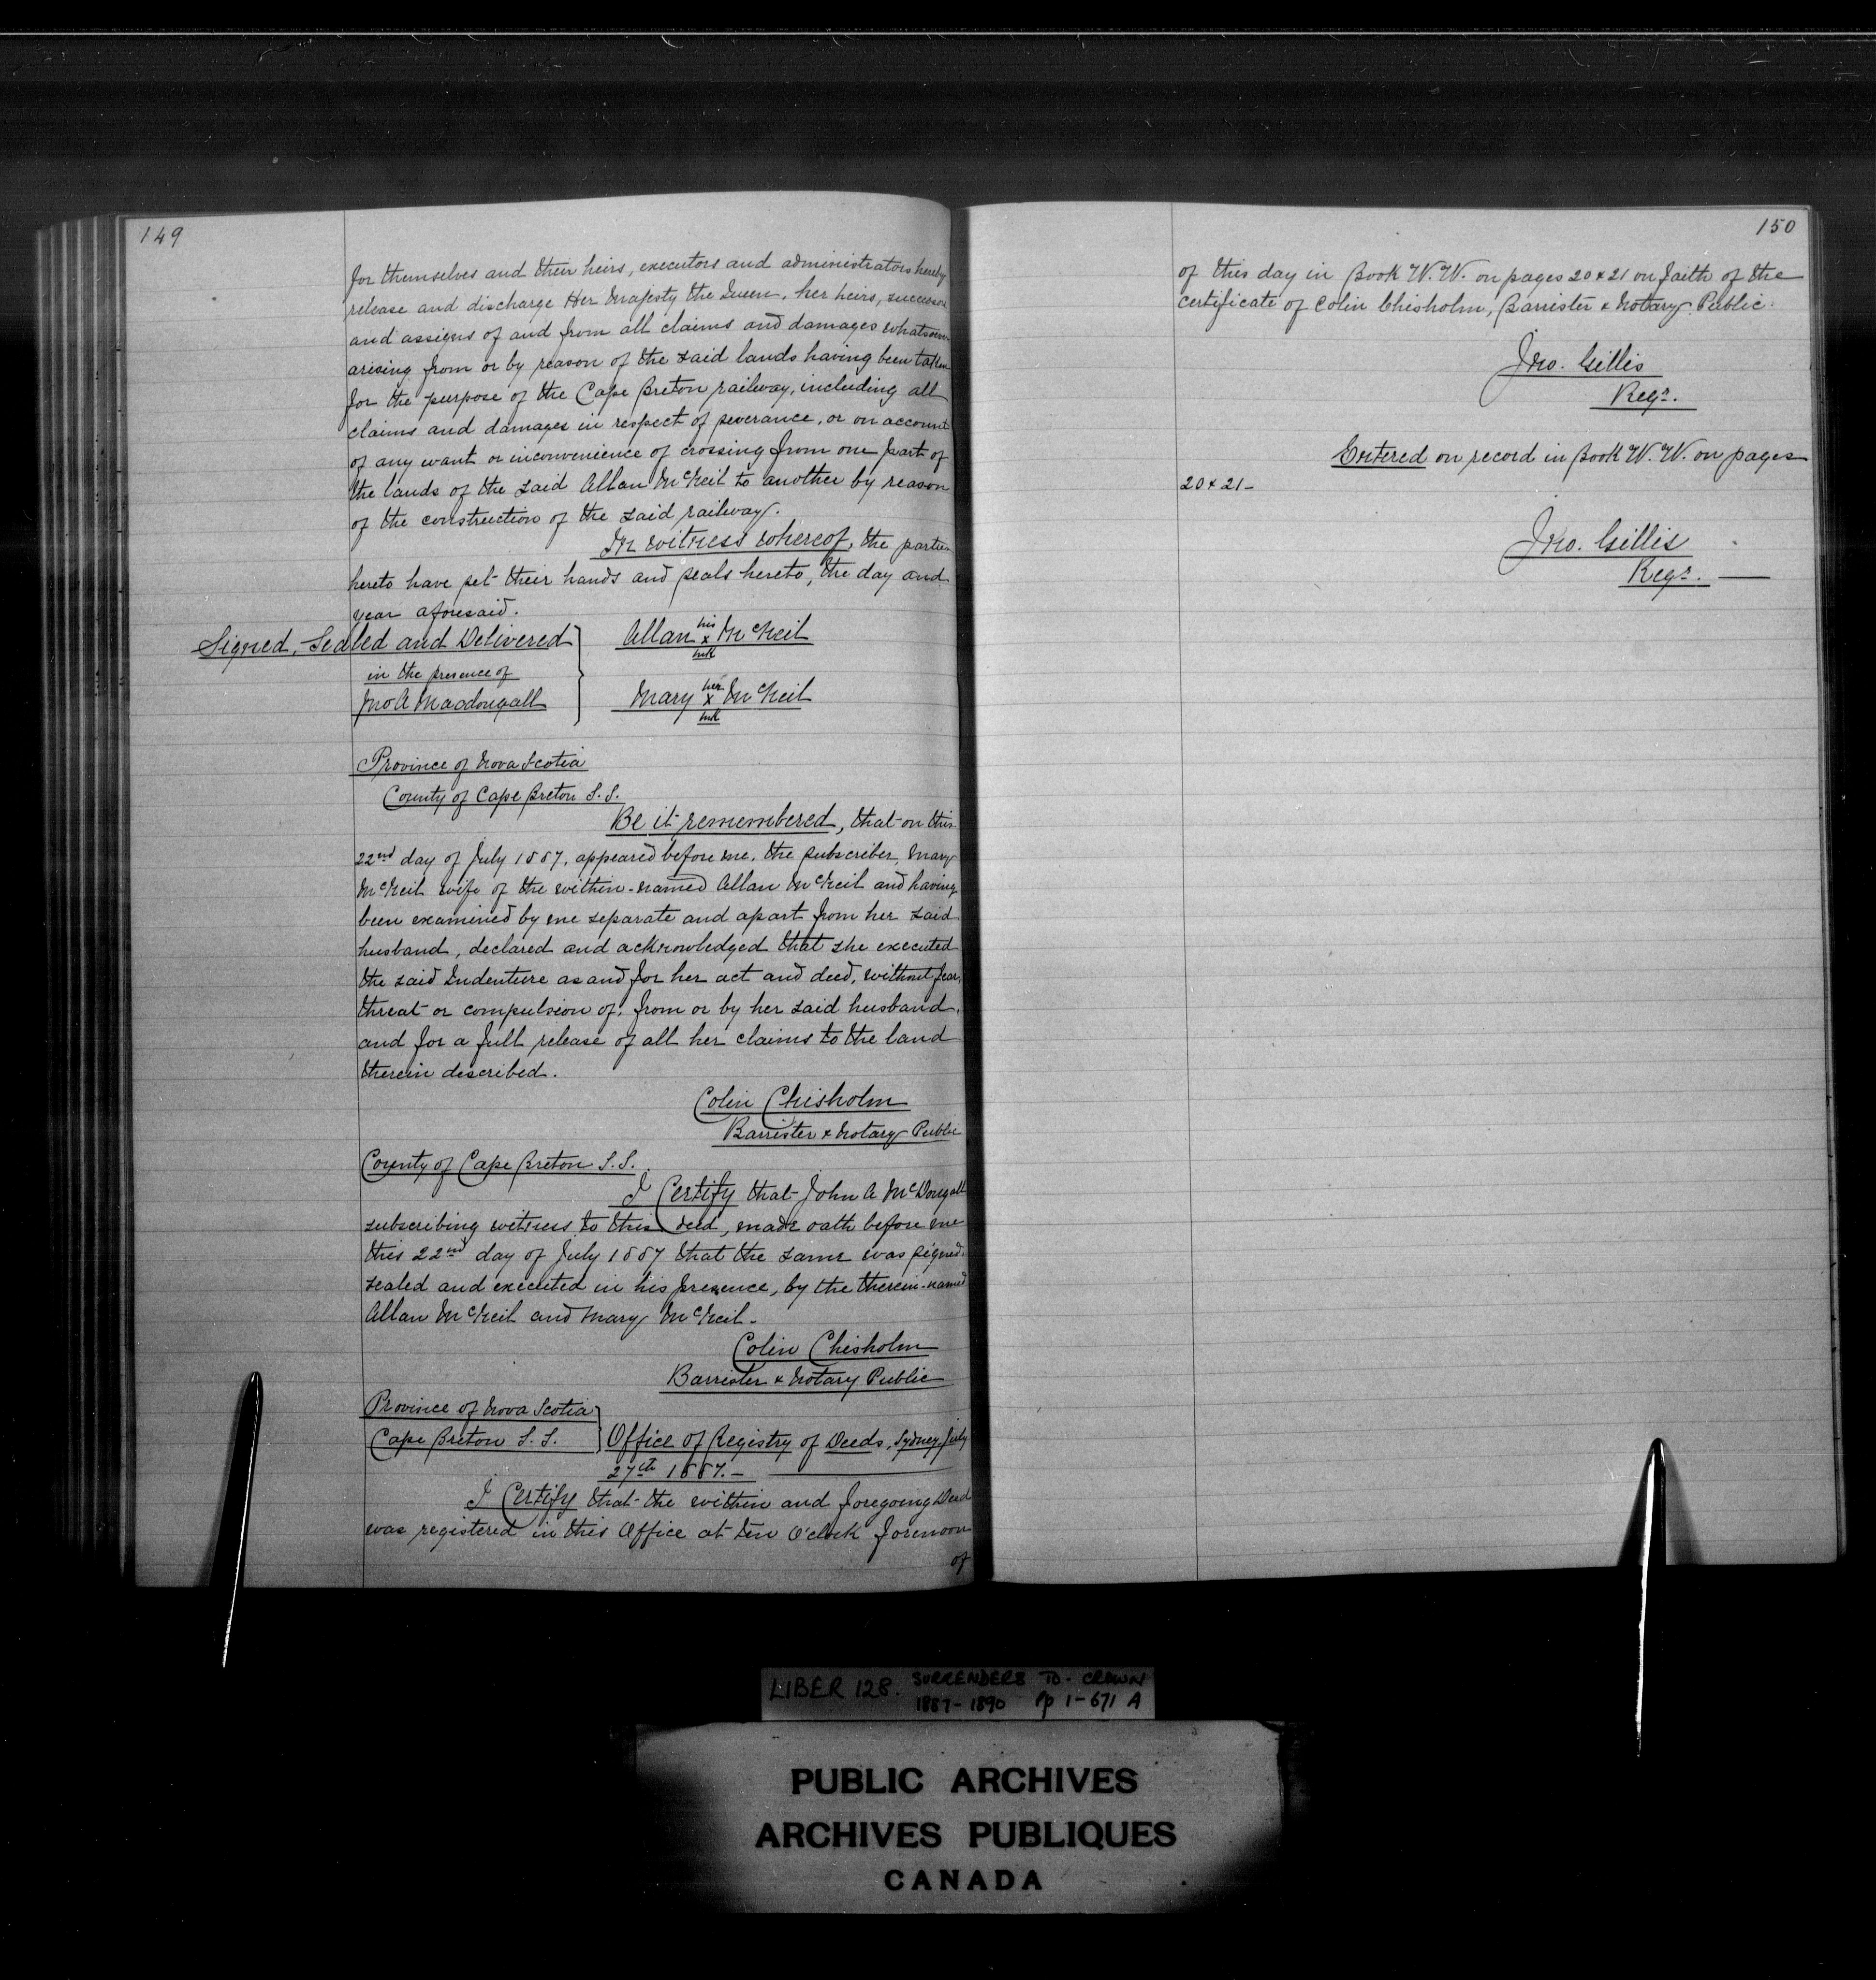 149
for themselves and their heirs, executors and administrators hereby
release and discharge Her Majesty the Queen, her heirs, successors
and assigns of and from all claims and damages whatsoever
arising from or by reason of the said lands having been taken
for the purpose of the Cape Breton railway, including all
claims and damages in respect of severance, or on account
of any want or inconvenience of crossing from one part of
the lands of the said Allan McNeil to another by reason
of the construction of the said railway.
In witness whereof, the parties
hereto have set their hands and seals hereto, the day and
year aforesaid.
Signed, Sealed and Delivered
in the presence of
Jno A Macdougall
Allan his x mk McNeil
Mary her x mk McNeil
Province of Nova Scotia
County of Cape Breton S.S.
Be it remembered, that on this
22nd day of July 1887, appeared before me, the subscriber, Mary
McNeil wife of the within-named Allan McNeil and having
been examined by me separate and apart from her said
husband, declared and acknowledged that she executed
the said Indenture as and for her act and deed, without fear,
threat or compulsion of, from or by her said husband,
and for a full release of all her claims to the land
therein described.
Colin Chisholm
Barrister & Notary Public
County of Cape Breton S.S.
I Certify that John A McDougall
subscribing witness to this deed, made oath before me
this 22nd day of July 1887 that the same was signed,
sealed and executed in his presence, by the therein-named
Allan McNeil and Mary McNeil.
Colin Chisholm
Barrister & Notary Public
Province of Nova Scotia
Cape Breton S.S.
Office of Registry of Deeds, Sydney, July
27th 1887.—
I Certify that the within and foregoing Deed
was registered in this Office at ten O'clock forenoon
of
150
of this day in Book W.W. on pages 20 & 21 on faith of the
certificate of Colin Chisholm, Barrister & Notary Public.
Jno. Gillis
Regr.
Entered on record in Book W.W. on pages
20 & 21—
Jno. Gillis
Regr. —
LIBER 128. SURRENDERS TO CROWN
1887-1890 pp 1-671 A
PUBLIC ARCHIVES
ARCHIVES PUBLIQUES
CANADA